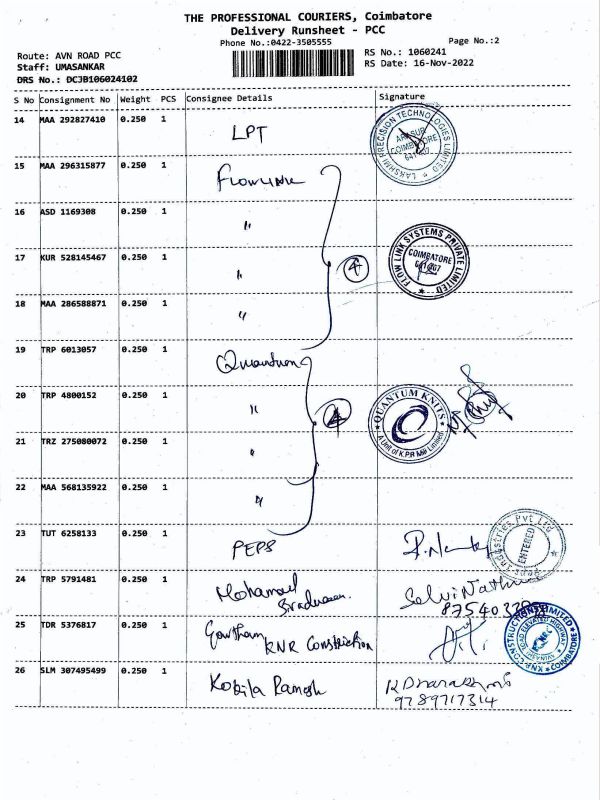 THE PROFESSIONAL COURIERS, Coimbatore
Delivery Runsheet - PCC
Phone No.:0422-3505555
Page No.:2
Route: AVN ROAD PCC
RS No.: 1060241
Staff: UMASANKAR
RS Date: 16-Nov-2022
DRS No.: DCJB106024102
S No Consignment No Weight PCS Consignee Details Signature
14 MAA 292827410 0.250 1 LPT
LAKSHMI PRECISION TECHNOLOGIES LIMITED
COIMBATORE
15 MAA 296315877 0.250 1 Flowlink
16 ASD 1169308 0.250 1 "
17 KUR 528145467 0.250 1 "
4
FLOW LINK SYSTEMS PRIVATE LIMITED
COIMBATORE
18 MAA 286588871 0.250 1 "
19 TRP 6013057 0.250 1 Quantum
20 TRP 4800152 0.250 1 "
4
QUANTUM KNITS
A Unit of K.P.R Mill Limited
21 TRZ 275080072 0.250 1 "
22 MAA 568135922 0.250 1 "
23 TUT 6258133 0.250 1 PEPS
Peps Industries Pvt Ltd
ENTERED
24 TRP 5791481 0.250 1 Mohamed
25 TDR 5376817 0.250 1 Gowtham
KNR Constriction
KNR CONSTRUCTIONS LIMITED
COIMBATORE
26 SLM 307495499 0.250 1 Kokila Ramesh
9789717314